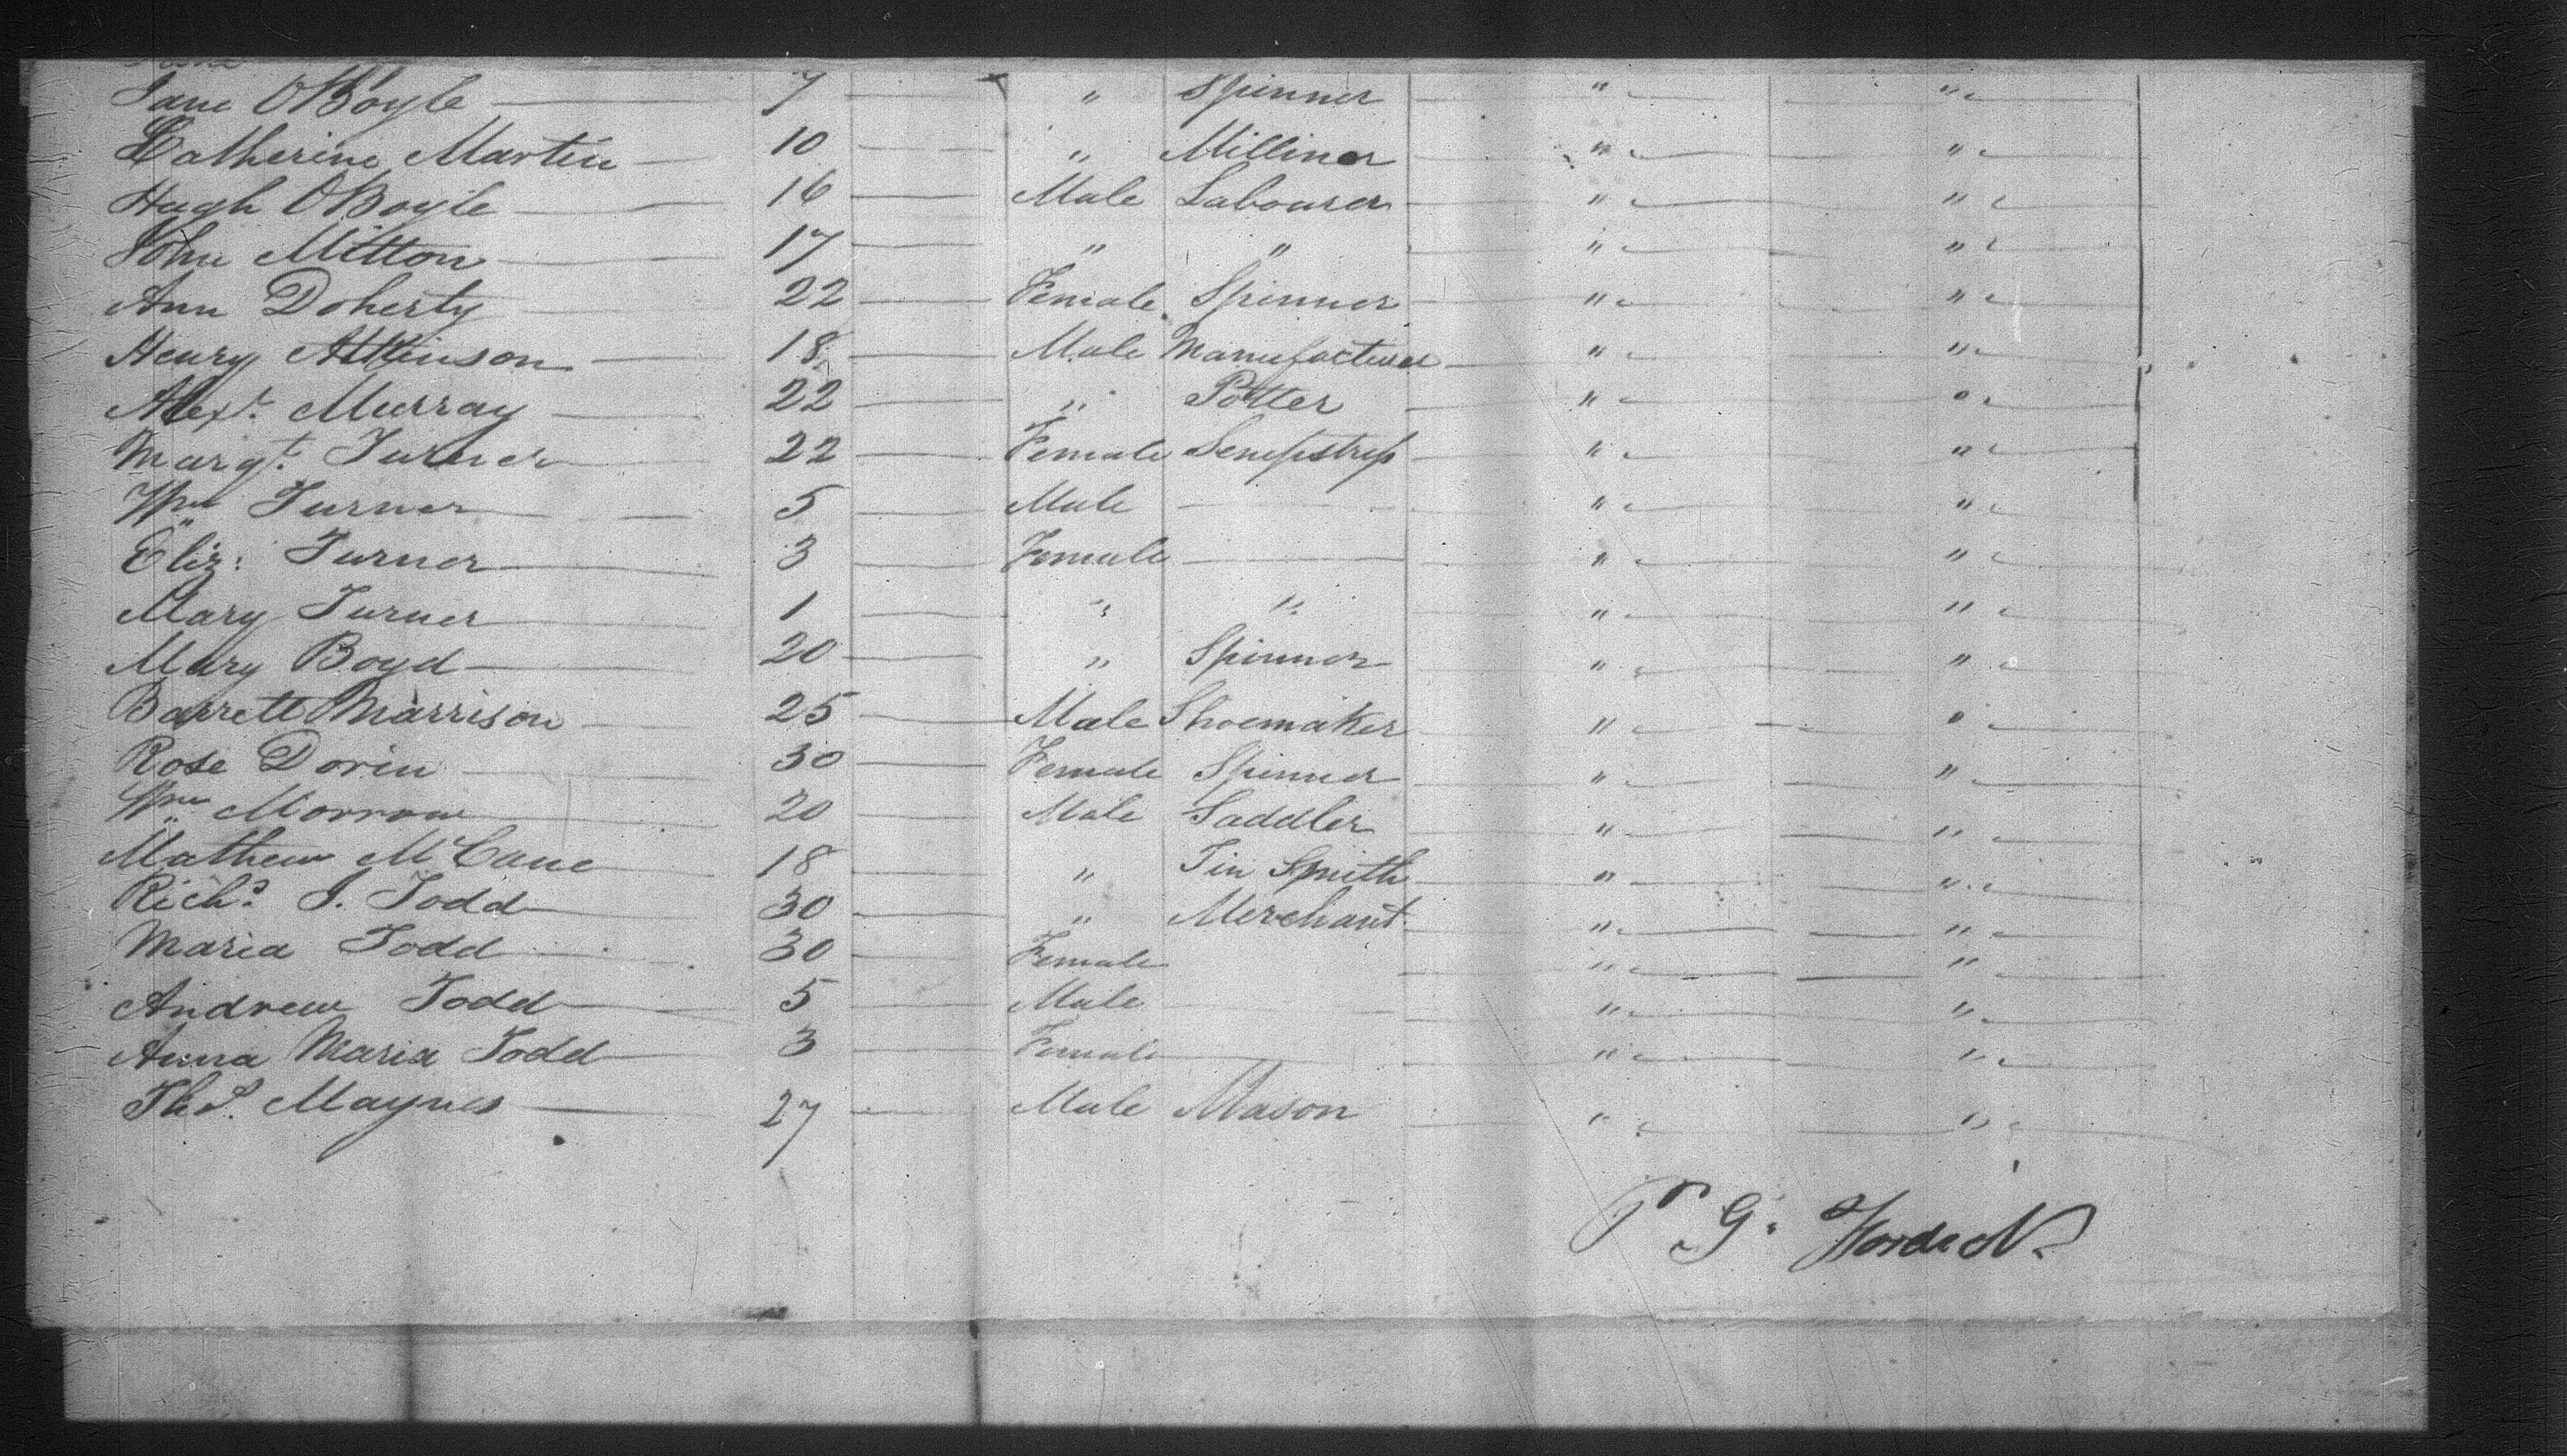 Jane OBoyle 7 " Spinner " "
Catherine Martin 10 " Milliner " "
Hugh OBoyle 16 Male Labourer " "
John Mitton 17 " " " "
Ann Doherty 22 Female Spinner " "
Henry Atkinson 18 Male Manufacturer " "
Alexr. Murray 22 " Potter " "
Margt. Turner 22 Female Sempstress " "
Wm Turner 5 Male " "
Eliz: Turner 3 Female " "
Mary Turner 1 " " " "
Mary Boyd 20 " Spinner " "
Barrett Marrison 25 Male Shoemaker " "
Rose Dorin 30 Female Spinner " "
Wm Morrow 20 Male Saddler " "
Mathew McCane 18 " Tin Smith " "
Richd. J. Todd 30 " Merchant " "
Maria Todd 30 Female " "
Andrew Todd 5 Male " "
Anna Maria Todd 3 Female " "
Thos. Maynes 27 Male Mason " "
G.